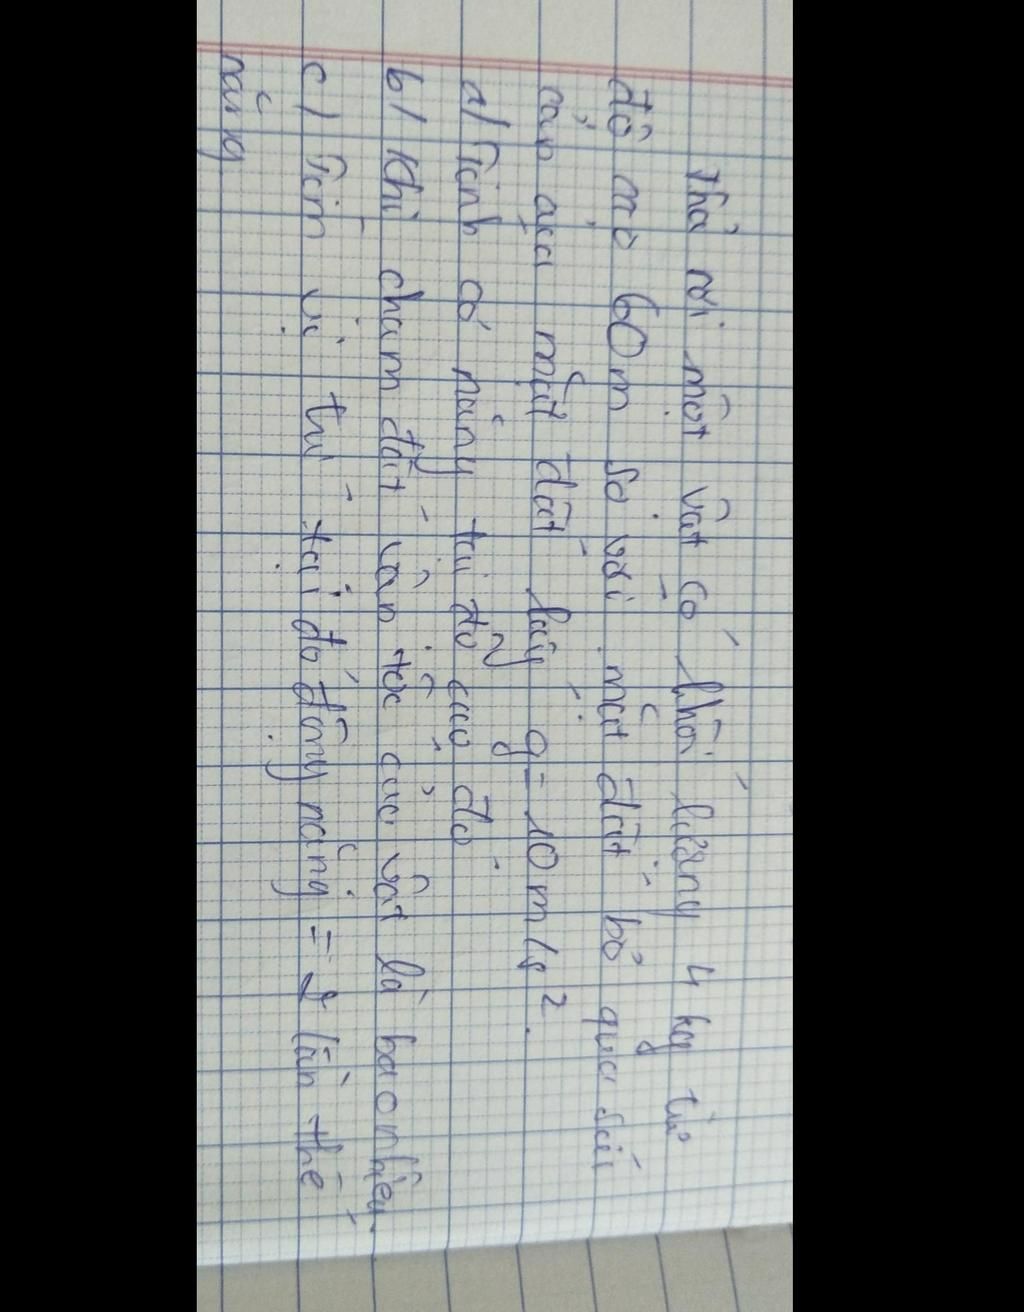 Thả rơi một vật có khối lượng 4 kg từ
độ cao 60m so với mặt đất bỏ qua sức
cản của mặt đất lấy g = 10 m/s².
a/ Tính cơ năng tại độ cao đó
b/ Khi chạm đất vận tốc của vật là bao nhiêu.
c/ Tìm vị trí tại đó động năng = 2 lần thế
năng